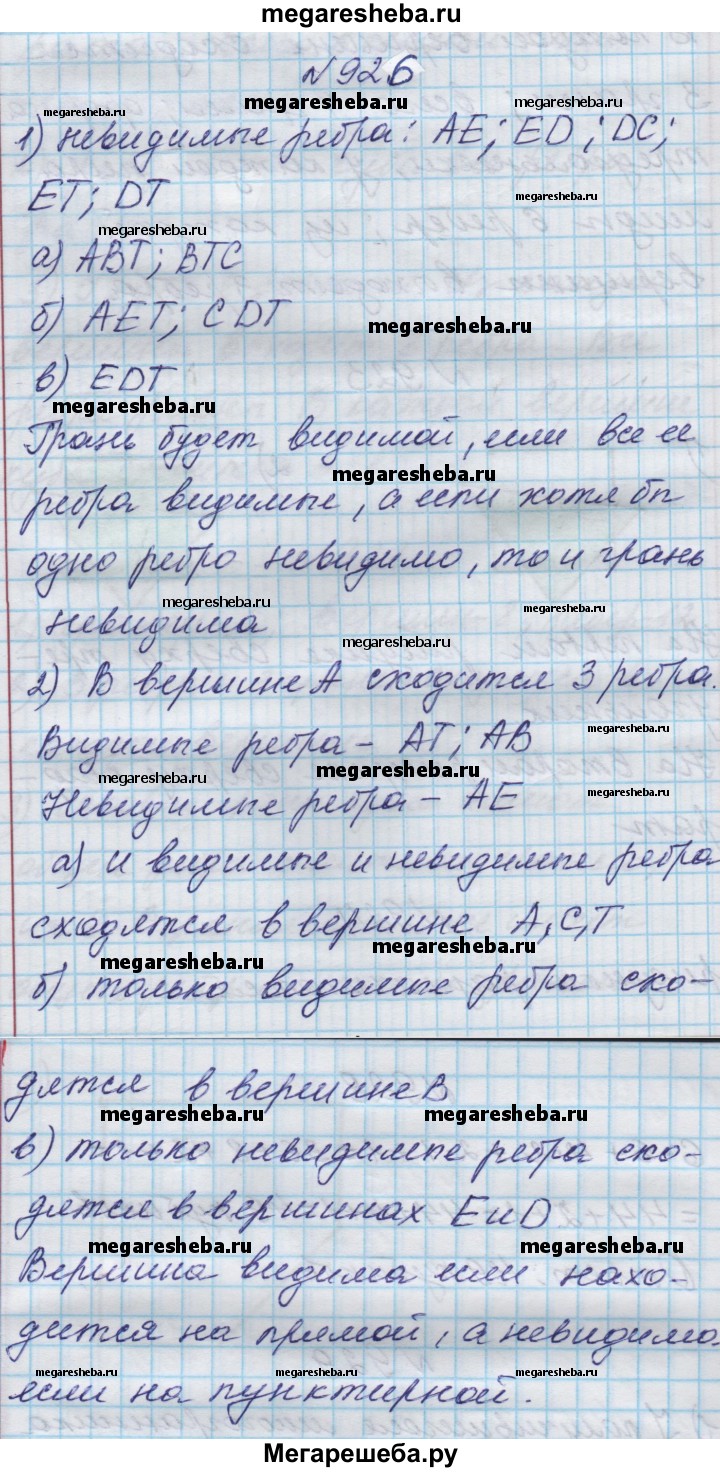 megaresheba.ru
№926
megaresheba.ru megaresheba.ru megaresheba.ru
1) невидимые ребра: AE; ED; DC;
ET; DT
megaresheba.ru megaresheba.ru
а) ABT; BTC
б) AET; CDT
megaresheba.ru
в) EDT
megaresheba.ru
Грань будет видимой, если все ее
megaresheba.ru
ребра видимые, а если хотя бы
одно ребро невидимо, то и грань
megaresheba.ru megaresheba.ru
невидима
megaresheba.ru
2) В вершине A сходится 3 ребра.
megaresheba.ru
Видимые ребра - AT; AB
megaresheba.ru megaresheba.ru megaresheba.ru
Невидимые ребра - AE
а) и видимые и невидимые ребра
сходятся в вершине A, C, T
megaresheba.ru megaresheba.ru
б) только видимые ребра схо-
дятся в вершине B
megaresheba.ru megaresheba.ru
в) только невидимые ребра схо-
дятся в вершинах E и D
megaresheba.ru megaresheba.ru
Вершина видима если нахо-
дится на прямой, а невидима
megaresheba.ru megaresheba.ru megaresheba.ru
если на пунктирной.
Мегарешеба.ру